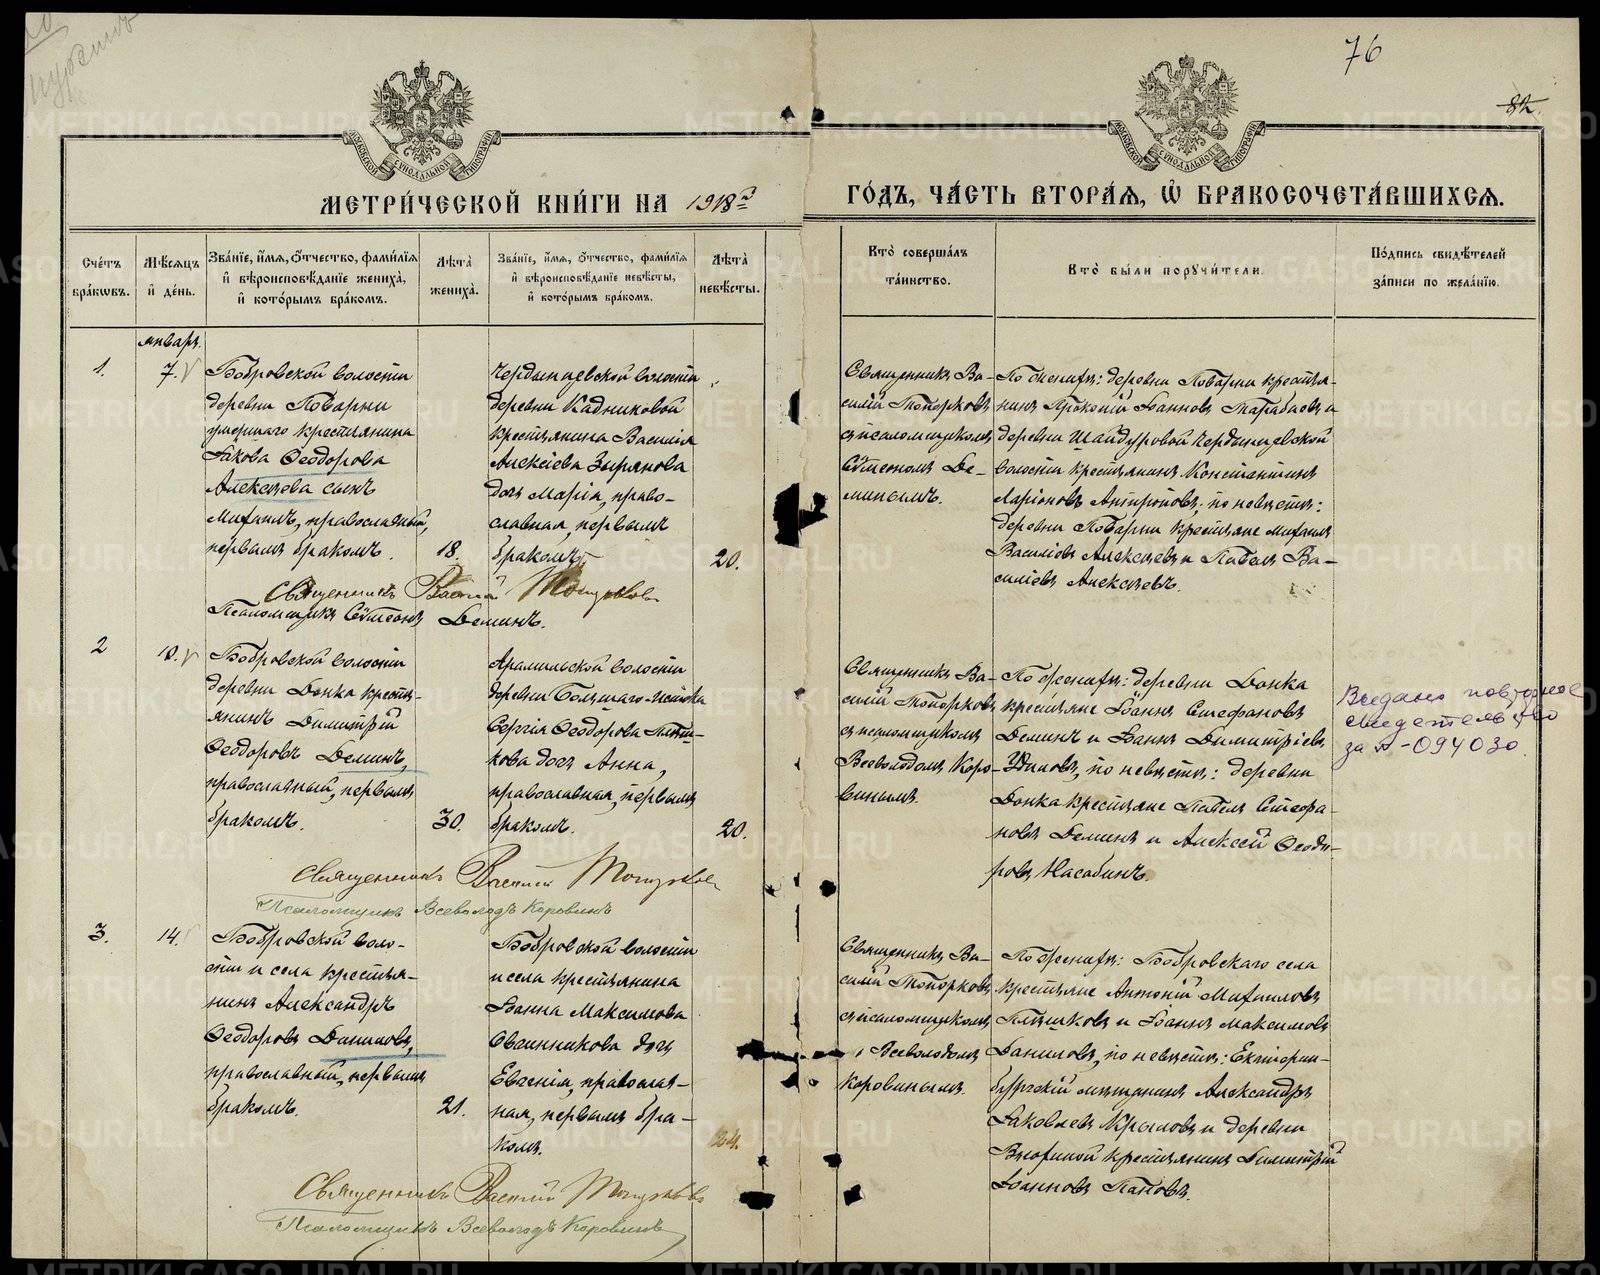 76
82
МОСКОВСКОЙ СѴНОДАЛЬНОЙ ТИПОГРАФІИ
МОСКОВСКОЙ СѴНОДАЛЬНОЙ ТИПОГРАФІИ
МЕТРИ́ЧЕСКОЙ КНИ́ГИ НА 1918й
ГО́ДЪ, ЧА́СТЬ ВТОРА́Я, Ѽ БРАКОСОЧЕТА́ВШИХСЯ.
Сче́тъ
бра́кѡвъ.
Мѣ́сяцъ
и҆ де́нь.
Зва́нїе, и҆́мя, ѻ҆́тчество, фами́лїя
и҆ вѣроисповѣ́данїе жениха̀,
и҆ кото́рымъ бра́комъ.
Лѣ́та̀
жениха̀.
Зва́нїе, и҆́мя, ѻ҆́тчество, фами́лїя
и҆ вѣроисповѣ́данїе невѣ́сты,
и҆ кото́рымъ бра́комъ.
Лѣ́та̀
невѣ́сты.
Кто̀ соверша́лъ
та́инство.
Кто̀ бы́ли порꙋчи́тели.
По́дпись свидѣ́телей
за́писи по жела́нїю.
январь.
1.
7.
Бобровской волости
деревни Поварни
умершаго крестьянина
Іакова Ѳеодорова
Алексѣева сынъ
Михаилъ, православный,
первымъ бракомъ.
18.
Чердынцевской волости
деревни Кадниковой
крестьянина Василія
Алексіева Зырянова
дочь Марія, право-
славная, первымъ
бракомъ.
20.
Священникъ Ва-
силій Топорковъ
съ псаломщикомъ
Сѵмеономъ Де-
минымъ.
По женихѣ: деревни Поварни крестья-
нинъ Прокопій Іоанновъ Тарабаевъ и
деревни Шайдуровой Чердынцевской
волости крестьянинъ Константинъ
Ларіоновъ Антроповъ; по невѣстѣ:
деревни Поварни крестьяне Михаилъ
Василіевъ Алексѣевъ и Павелъ Ва-
силіевъ Алексѣевъ.
Священникъ Василій Топорковъ
Псаломщикъ Сѵмеонъ Деминъ.
2
10.
Бобровской волости
деревни Фонка кресть-
янинъ Димитрій
Ѳеодоровъ Деминъ,
православный, первымъ
бракомъ.
30.
Арамильской волости
деревни Большаго-Истока
Сергія Ѳеодорова Пят-
кова дочь Анна,
православная, первымъ
бракомъ.
20.
Священникъ Ва-
силій Топорковъ
съ псаломщикомъ
Всеволодомъ Коро-
винымъ.
По женихѣ: деревни Фонка
крестьяне Іоаннъ Стефановъ
Деминъ и Іоаннъ Димитріевъ
Удиловъ, по невѣстѣ: деревни
Фонка крестьяне Павелъ Стефа-
новъ Деминъ и Алексѣй Ѳеодо-
ровъ Насабинъ.
Выдано повторное
свидетельство
за № -094030.
Священникъ Василій Топорковъ
Псаломщикъ Всеволодъ Коровинъ
3.
14.
Бобровской воло-
сти и села крестья-
нинъ Александръ
Ѳеодоровъ Даниловъ,
православный, первымъ
бракомъ.
21.
Бобровской волости
и села крестьянина
Іоанна Максимова
Овчинникова дочь
Евгенія, православ-
ная, первымъ бра-
комъ.
24.
Священникъ Ва-
силій Топорковъ
съ псаломщикомъ
Всеволодомъ
Коровинымъ.
По женихѣ: Бобровскаго села
крестьяне Антоній Михаиловъ
Плѣшковъ и Іоаннъ Максимовъ
Даниловъ, по невѣстѣ: Екатерин-
бургскій мѣщанинъ Александръ
Іаковлевъ Крыловъ и деревни
крестьянинъ Димитрій
Іоанновъ Пановъ.
Священникъ Василій Топорковъ
Псаломщикъ Всеволодъ Коровинъ